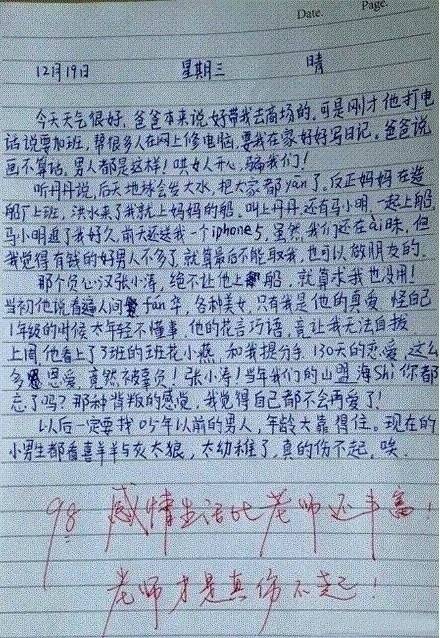 Date.
Page.
12月19日 星期三 晴
今天天气很好，爸爸本来说好带我去商场的，可是刚才他打电
话说要加班，帮很多人在网上修电脑，要我在家好好写日记。爸爸说
画不算话，男人都是这样！哄女人开心，骗我们！
听丹丹说，后天地球会发大水，把大家都yān了，反正妈妈在造
船厂上班，洪水来了我就上妈妈的船，叫上丹丹，还有马小明，一起上船
马小明追了我好久，前天还送我一个iphone5，虽然我们还在ài昧，但
我觉得有钱的好男人不多了，就算最后不能取我，也可以做朋友的。
那个负心汉张小涛，绝不让他上船，就算求我也没用！
当初他说看遍人间fán华，各种美女，只有我是他的真爱，怪自己
1年级的时候太年轻不懂事，他的花言巧语，竟让我无法自拔
上周他看上了3班的班花小燕，和我提分手，130天的恋爱，这么
多恩爱，竟然被辜负！张小涛！当年我们的山盟海Shì你都
忘了吗？那种背叛的感觉，我觉得自己都不会再爱了！
以后一定要找05年以前的男人，年龄大靠得住。现在的
小男生都看喜羊羊与灰太狼，太幼稚了，真的伤不起，唉。
98 感情生活比老师还丰富！
老师才是真伤不起！